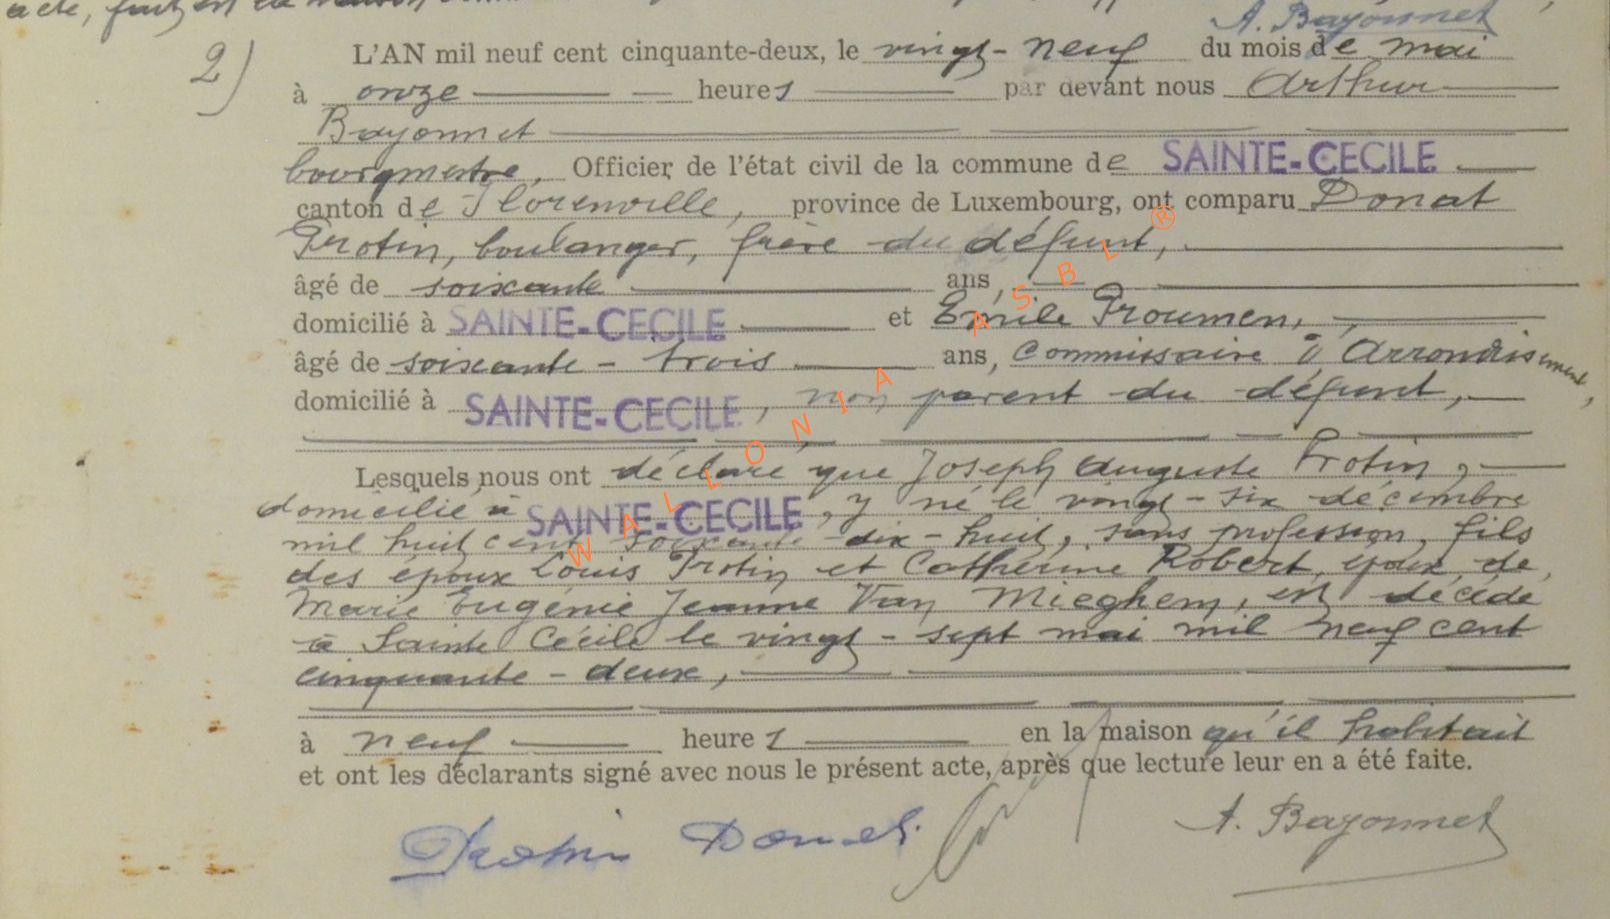 acte, fait en la maison
A. Bayonnet
2) L'AN mil neuf cent cinquante-deux, le vingt-neuf du mois de mai
à onze heures par devant nous Arthur
Bayonnet
bourgmestre, Officier de l'état civil de la commune de SAINTE-CECILE
canton de Florenville, province de Luxembourg, ont comparu Donat
Protin, boulanger, frère du défunt,
âgé de soixante ans,
domicilié à SAINTE-CECILE et Emile Proumen,
âgé de soixante-trois ans, Commissaire d'Arrondissement,
domicilié à SAINTE-CECILE, non parent du défunt,
Lesquels nous ont déclaré que Joseph Auguste Protin,
domicilié à SAINTE-CECILE, y né le vingt-six décembre
mil huit cent soixante-dix-huit, sans profession, fils
des époux Louis Protin et Catherine Robert, époux de
Marie Eugénie Jeanne Van Mieghem, est décédé
à Sainte Cécile le vingt-sept mai mil neuf cent
cinquante-deux,
à neuf heures en la maison qu'il habitait
et ont les déclarants signé avec nous le présent acte, après que lecture leur en a été faite.
Protin Donat. A. Bayonnet
WALLONIA ASBL ®